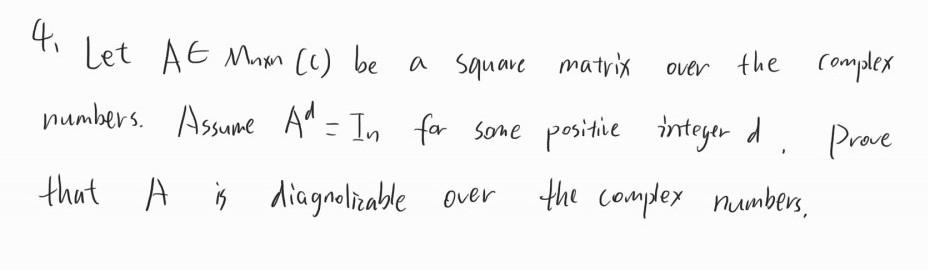 4. Let A ∈ Mnxn (C) be a square matrix over the complex
numbers. Assume A^d = In for some positive integer d. Prove
that A is diagnolizable over the complex numbers.